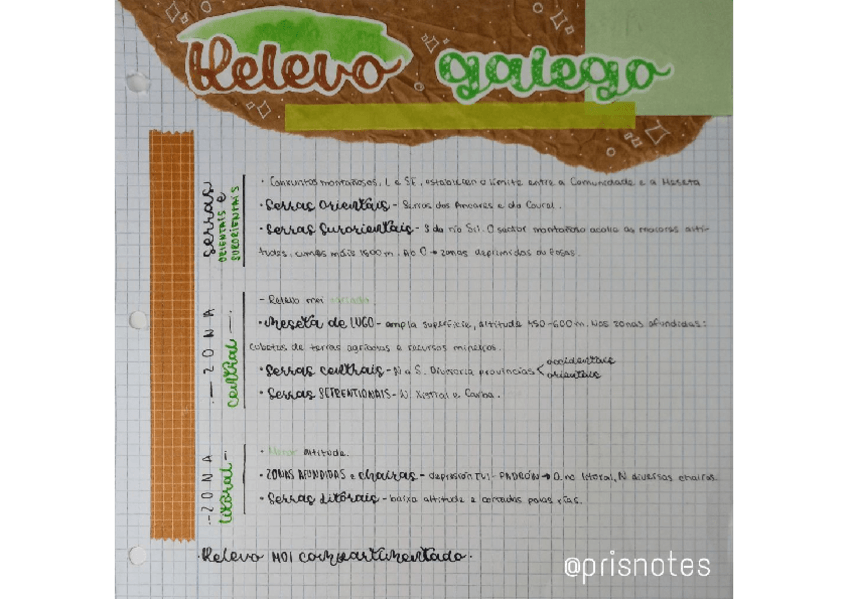 Relevo galego
serras
ORIENTAIS E
SURORIENTAIS
· Conxuntos montañosos, L e SE, establecen o límite entre a Comunidade e a Meseta
· Serras Orientais - Serras dos Ancares e do Courel.
· Serras Surorientais - S do río Sil. O sector montañoso acolle as maiores alti-
tudes, cumes máis 1500m. Ao O → zonas deprimidas ou fosas.
- ZONA
central -
- Relevo moi variado.
· Meseta de LUGO - ampla superficie, altitude 450-600m. Nas zonas afundidas:
cubetas de terras agrarias e recursos mineiros.
· Serras centrais - N a S. Divisoria provincias < occidentais
orientais
· Serras SETENTIONAIS - N. Xistral e Carba.
- ZONA
litoral -
· Menor altitude.
· ZONAS AFUNDIDAS e chairas - depresión TUI-PADRÓN → O. no litoral, N diversas chairas.
· Serras litorais - baixa altitude e cortadas polas rías.
· Relevo MOI compartimentado.
@prisnotes